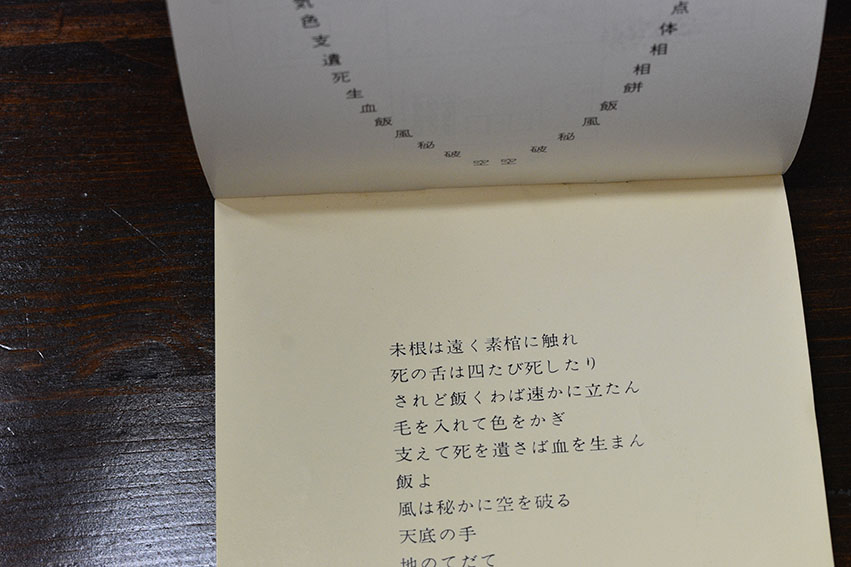 気
色
支
遺
死
生
血
飯
風
秘
破
空
空
破
秘
風
飯
餅
相
相
体
点
未根は遠く素棺に触れ
死の舌は四たび死したり
されど飯くわば速かに立たん
毛を入れて色をかぎ
支えて死を遺さば血を生まん
飯よ
風は秘かに空を破る
天底の手
地のてだて